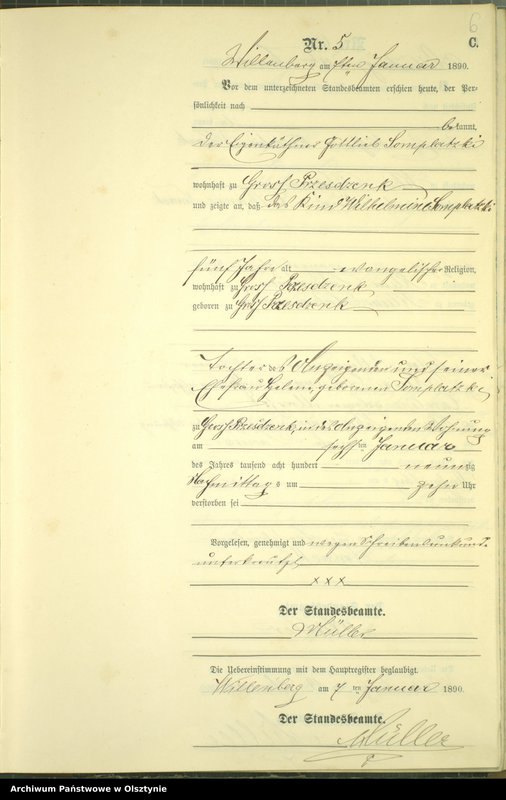 6
Nr. 5
C.
Willenberg am 7ten Januar 1890.
Vor dem unterzeichneten Standesbeamten erschien heute, der Per-
sönlichkeit nach
bekannt,
der Eigenkäthner Gottlieb Somplatzki
wohnhaft zu Gross Przesdzenk
und zeigte an, daß das Kind Wilhelmine Somplatzki
fünf Jahre alt evangelischer Religion,
wohnhaft zu Gross Przesdzenk
geboren zu Gross Przesdzenk
Tochter des Anzeigenden und seiner
Ehefrau Helene, geborenen Somplatzki
zu Gross Przesdzenk, in des Anzeigenden Wohnung
am sechsten Januar
des Jahres tausend acht hundert neunzig
Nachmittags um zehn Uhr
verstorben sei
Vorgelesen, genehmigt und wegen Schreibensunkunde
unterkreuzt
x x x
Der Standesbeamte.
Müller
Die Uebereinstimmung mit dem Hauptregister beglaubigt.
Willenberg am 7ten Januar 1890.
Der Standesbeamte.
Müller
Archiwum Państwowe w Olsztynie